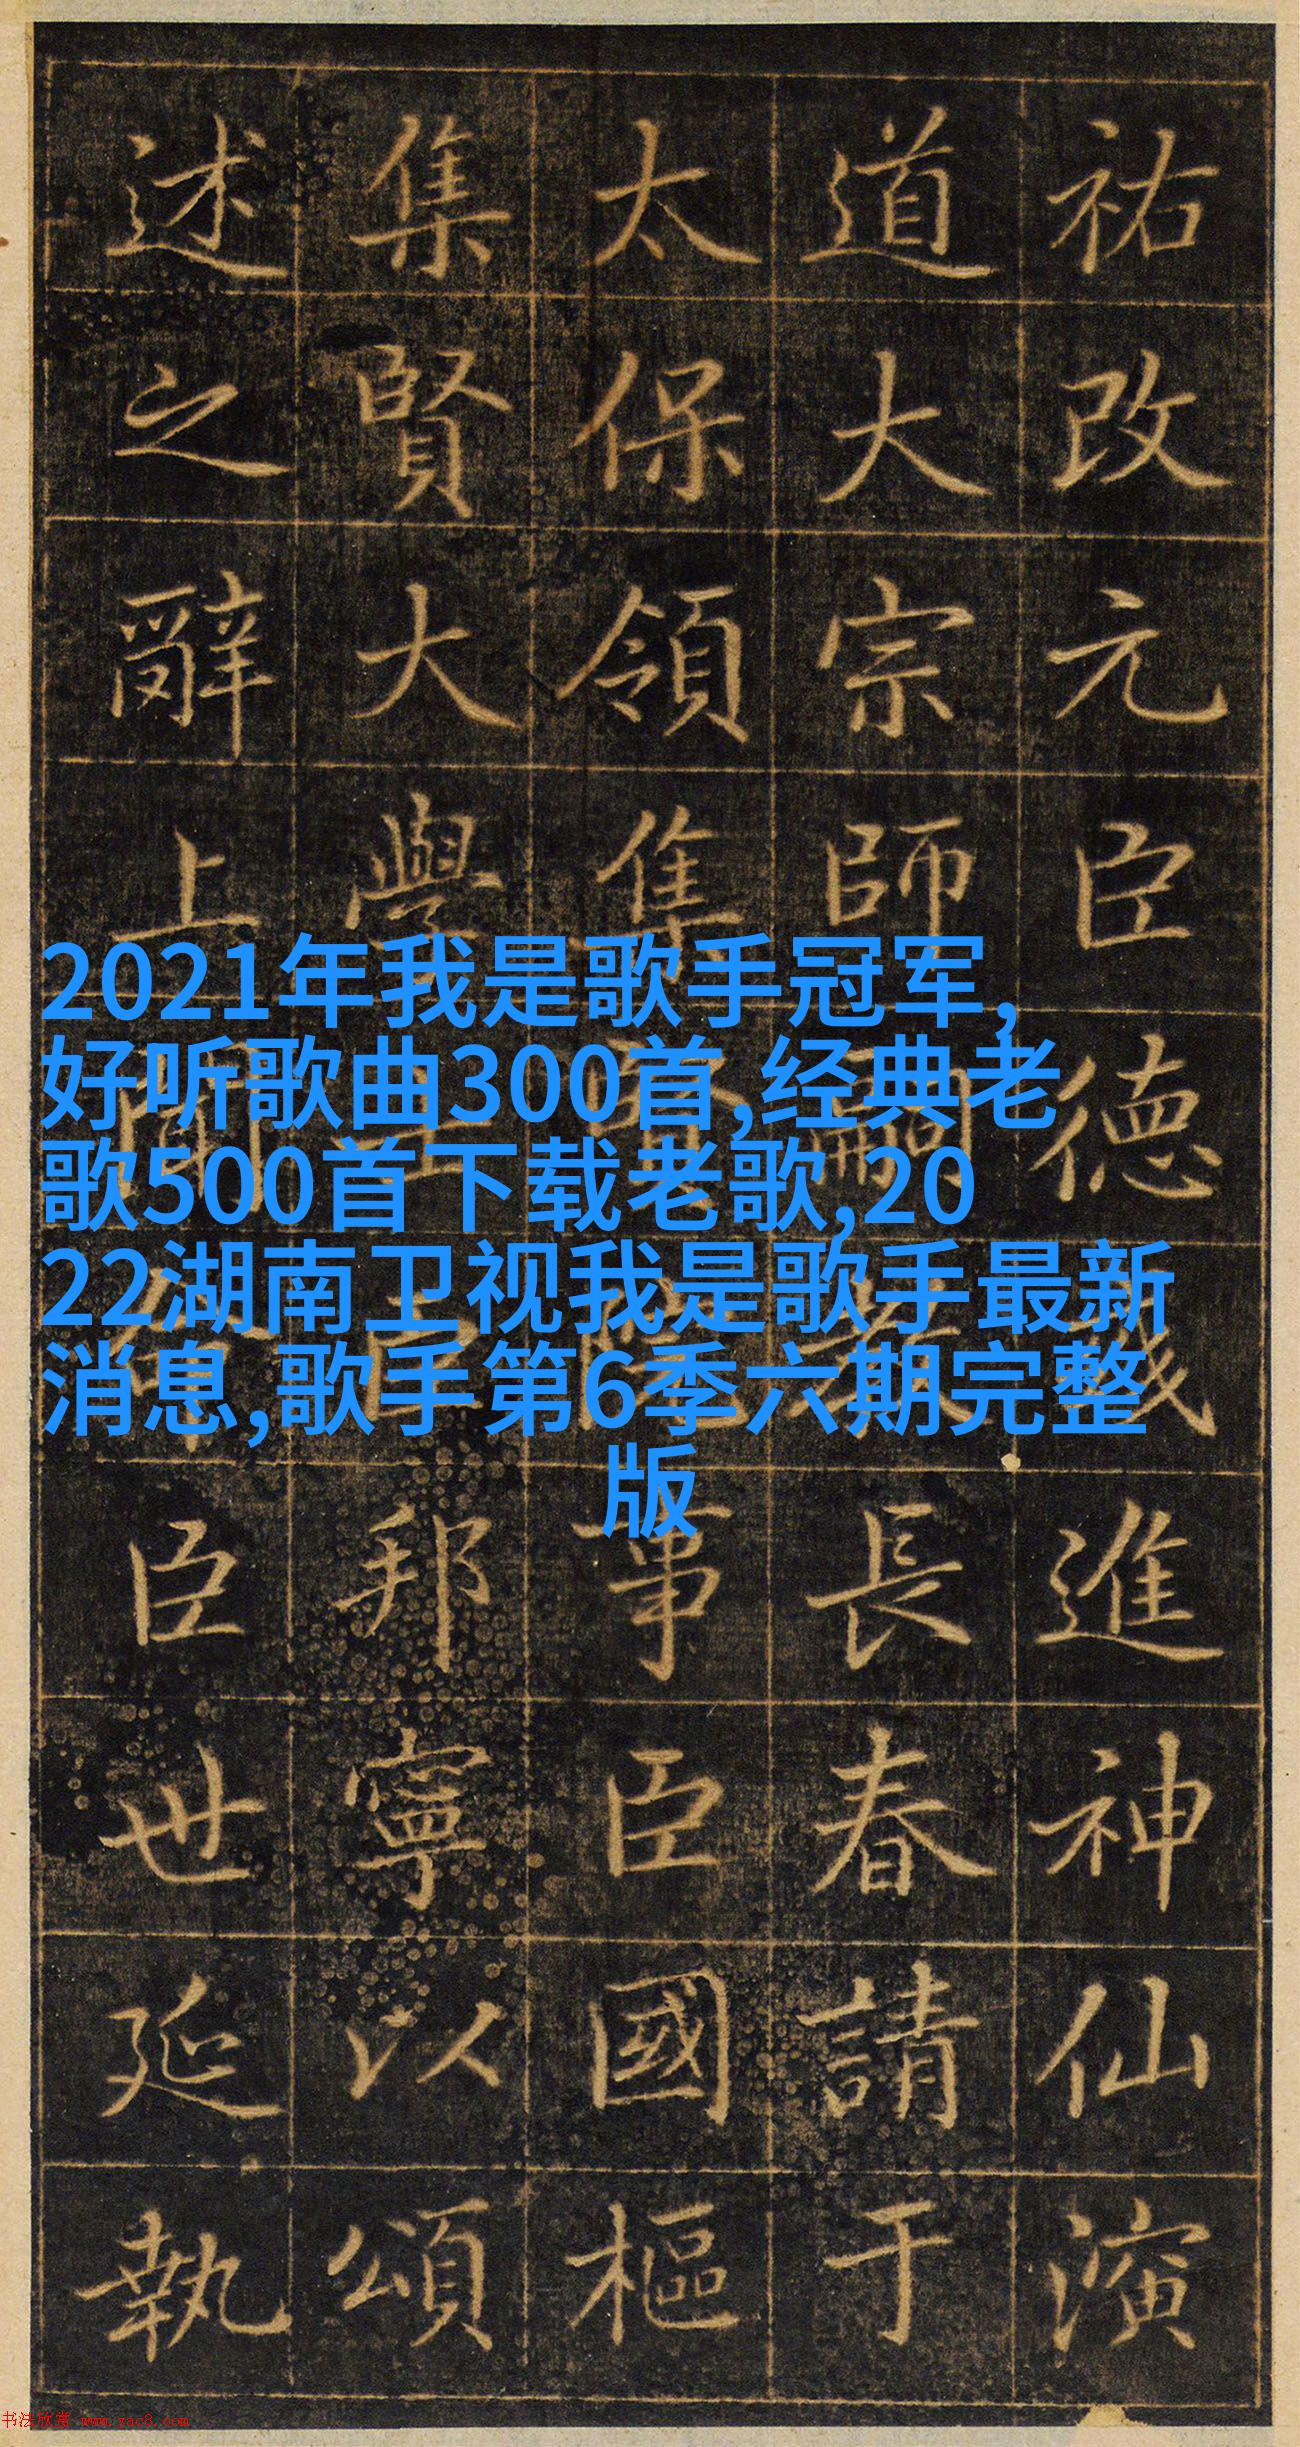 祐改元臣德進神仙演
道大宗師嗣長春請于
太保領集賢院事臣國樞
集賢大學士臣邦寧以頌
述之辭上聞臣世延執
2021年我是歌手冠军,
好听歌曲300首,经典老
歌500首下载老歌,20
22湖南卫视我是歌手最新
消息,歌手第6季六期完整
版
书法欣赏 www.yac8.com